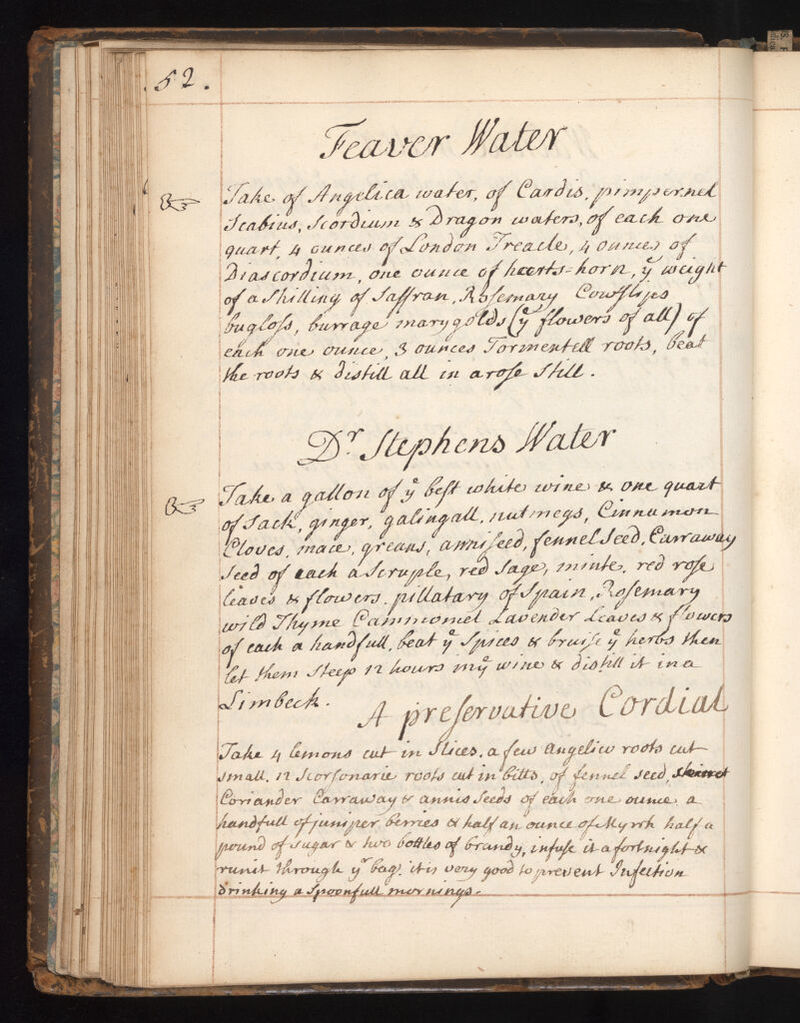 52.
Feaver Water
Take of Angelica water, of Cardis, pimpernel
Scabius, Scordium & Dragon waters, of each one
quart, 4 ounces of London Treacle, 4 ounces of
Diascordium, one ounce of hearts-horn, yͤ weight
of a Shilling of Saffran, Rosemary Cowslips
bugloss, burrage marygolds (yͤ flowers of all) of
each one ounce, 3 ounces Tormentell roots, beat
the roots & distill all in a rose Still.
Dʳ Stephens Water
Take a gallon of yͤ best white wine & one quart
of Sack, ginger, galingall, nutmegs, Cinnamon
Cloves, mace, greans, anniseed, fennel seed, Carraway
Seed of each a Scruple, red Sage, minte, red rose
leaves & flowers, pillatary of Spain, Rosemary
wild Thyme Cammomel Lavender Leaves & flowers
of each a handfull, beat yͤ Spices & bruise yͤ herbs then
let them Steep 12 hours in yͤ wine & distill it in a
Limbeck.
A preservative Cordial
Take 4 lemons cut in Slices, a few angelico roots cut
small, 12 Scorsonarie roots cut in bitts, of fennel seed,
Coriander Carraway & annis Seeds of each one ounce a
handfull of juniper berries & half an ounce of Myrrh half a
pound of Sugar & two bottles of brandy, infuse it a fortnight &
runit through yʳ bag. it is very good to prevent Infection
drinking a Spoonfull mornings.